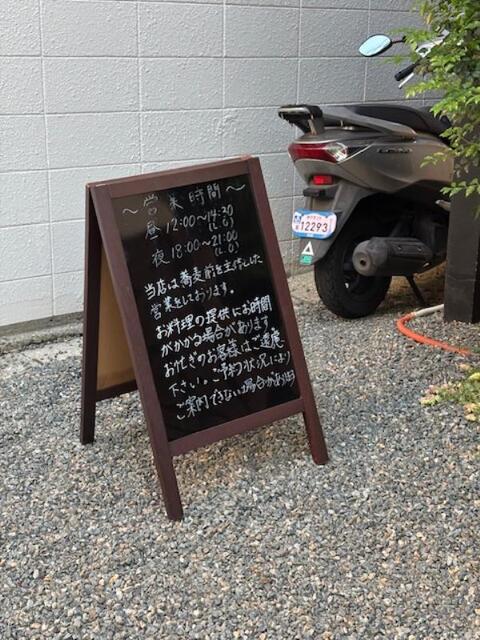 ～営業時間～
昼 12:00～14:30
(L.O)
夜 18:00～21:00
(L.O)
当店は蕎麦前を主体とした
営業をしております。
お料理の提供にお時間
がかかる場合があります
お忙ぎのお客様はご遠慮
下さい。ご予約状況により
ご案内できない場合があります
12293